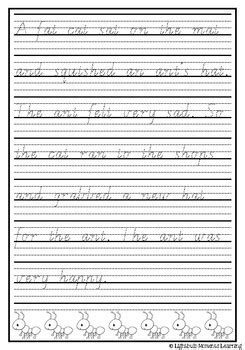 A fat cat sat on the mat
and squished an ant's hat.
The ant felt very sad. So
the cat ran to the shops
and grabbed a new hat
for the ant. The ant was
very happy.
© Lightbulb Moments Learning